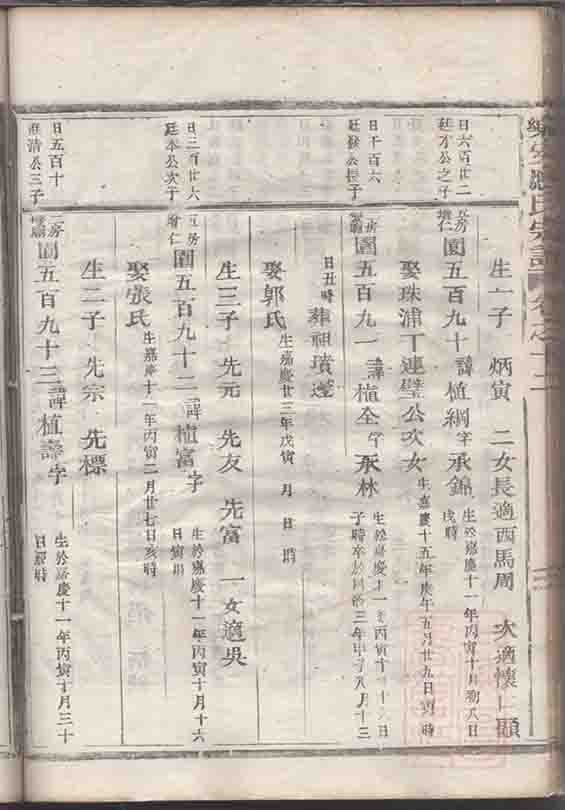 氏宗譜 卷之十二
生一子 炳寅 二女長適西馬周 次適懷仁顧
日六百廿二
廷才公之子
五房
圓五百九十 諱植綱字承錦
生於嘉慶十一年丙寅十月初八日
戌時
娶珠浦丁連璧公次女
生嘉慶十五年庚午五月廿九日 時
日千百六
廷發公長子
圓五百九一 諱植全字承林
生於嘉慶十一年丙寅十 十六日
子時卒於同治三年甲子八月十三
日丑時 葬祖墳邊
娶郭氏
生嘉慶廿三年戊寅 月 日 時
日三百廿六
廷本公次子
五房
圓五百九十二 諱植富字
生於嘉慶十一年丙寅十月十六
日寅時
生三子 先元 先友 先富 一女適吳
娶張氏
生嘉慶十一年丙寅二月廿七日亥時
生二子 先宗 先標
日五百十
清公三子
房
圓五百九十三 諱植壽字
生於嘉慶十一年丙寅十月三十
日 時